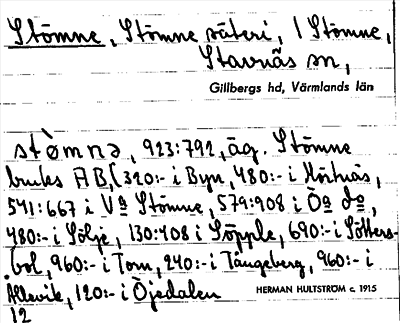 Stömne, Stömne säteri, 1 Stömne,
Stavnäs sn,
Gillbergs hd, Värmlands län
stömnə, 923:792, äg. Stömne
bruks AB, (320:- i Byn, 480:- i Hörtnäs,
541:667 i Va Stömne, 579:908 i Öa do,
480:- i Sölje, 130:408 i Söpple, 690:- i Sötters-
bol, 960:- i Tom, 240:- i Tångeberg, 960:- i
Allevik, 120:- i Öjedalen
HERMAN HULTSTRÖM c. 1915
12